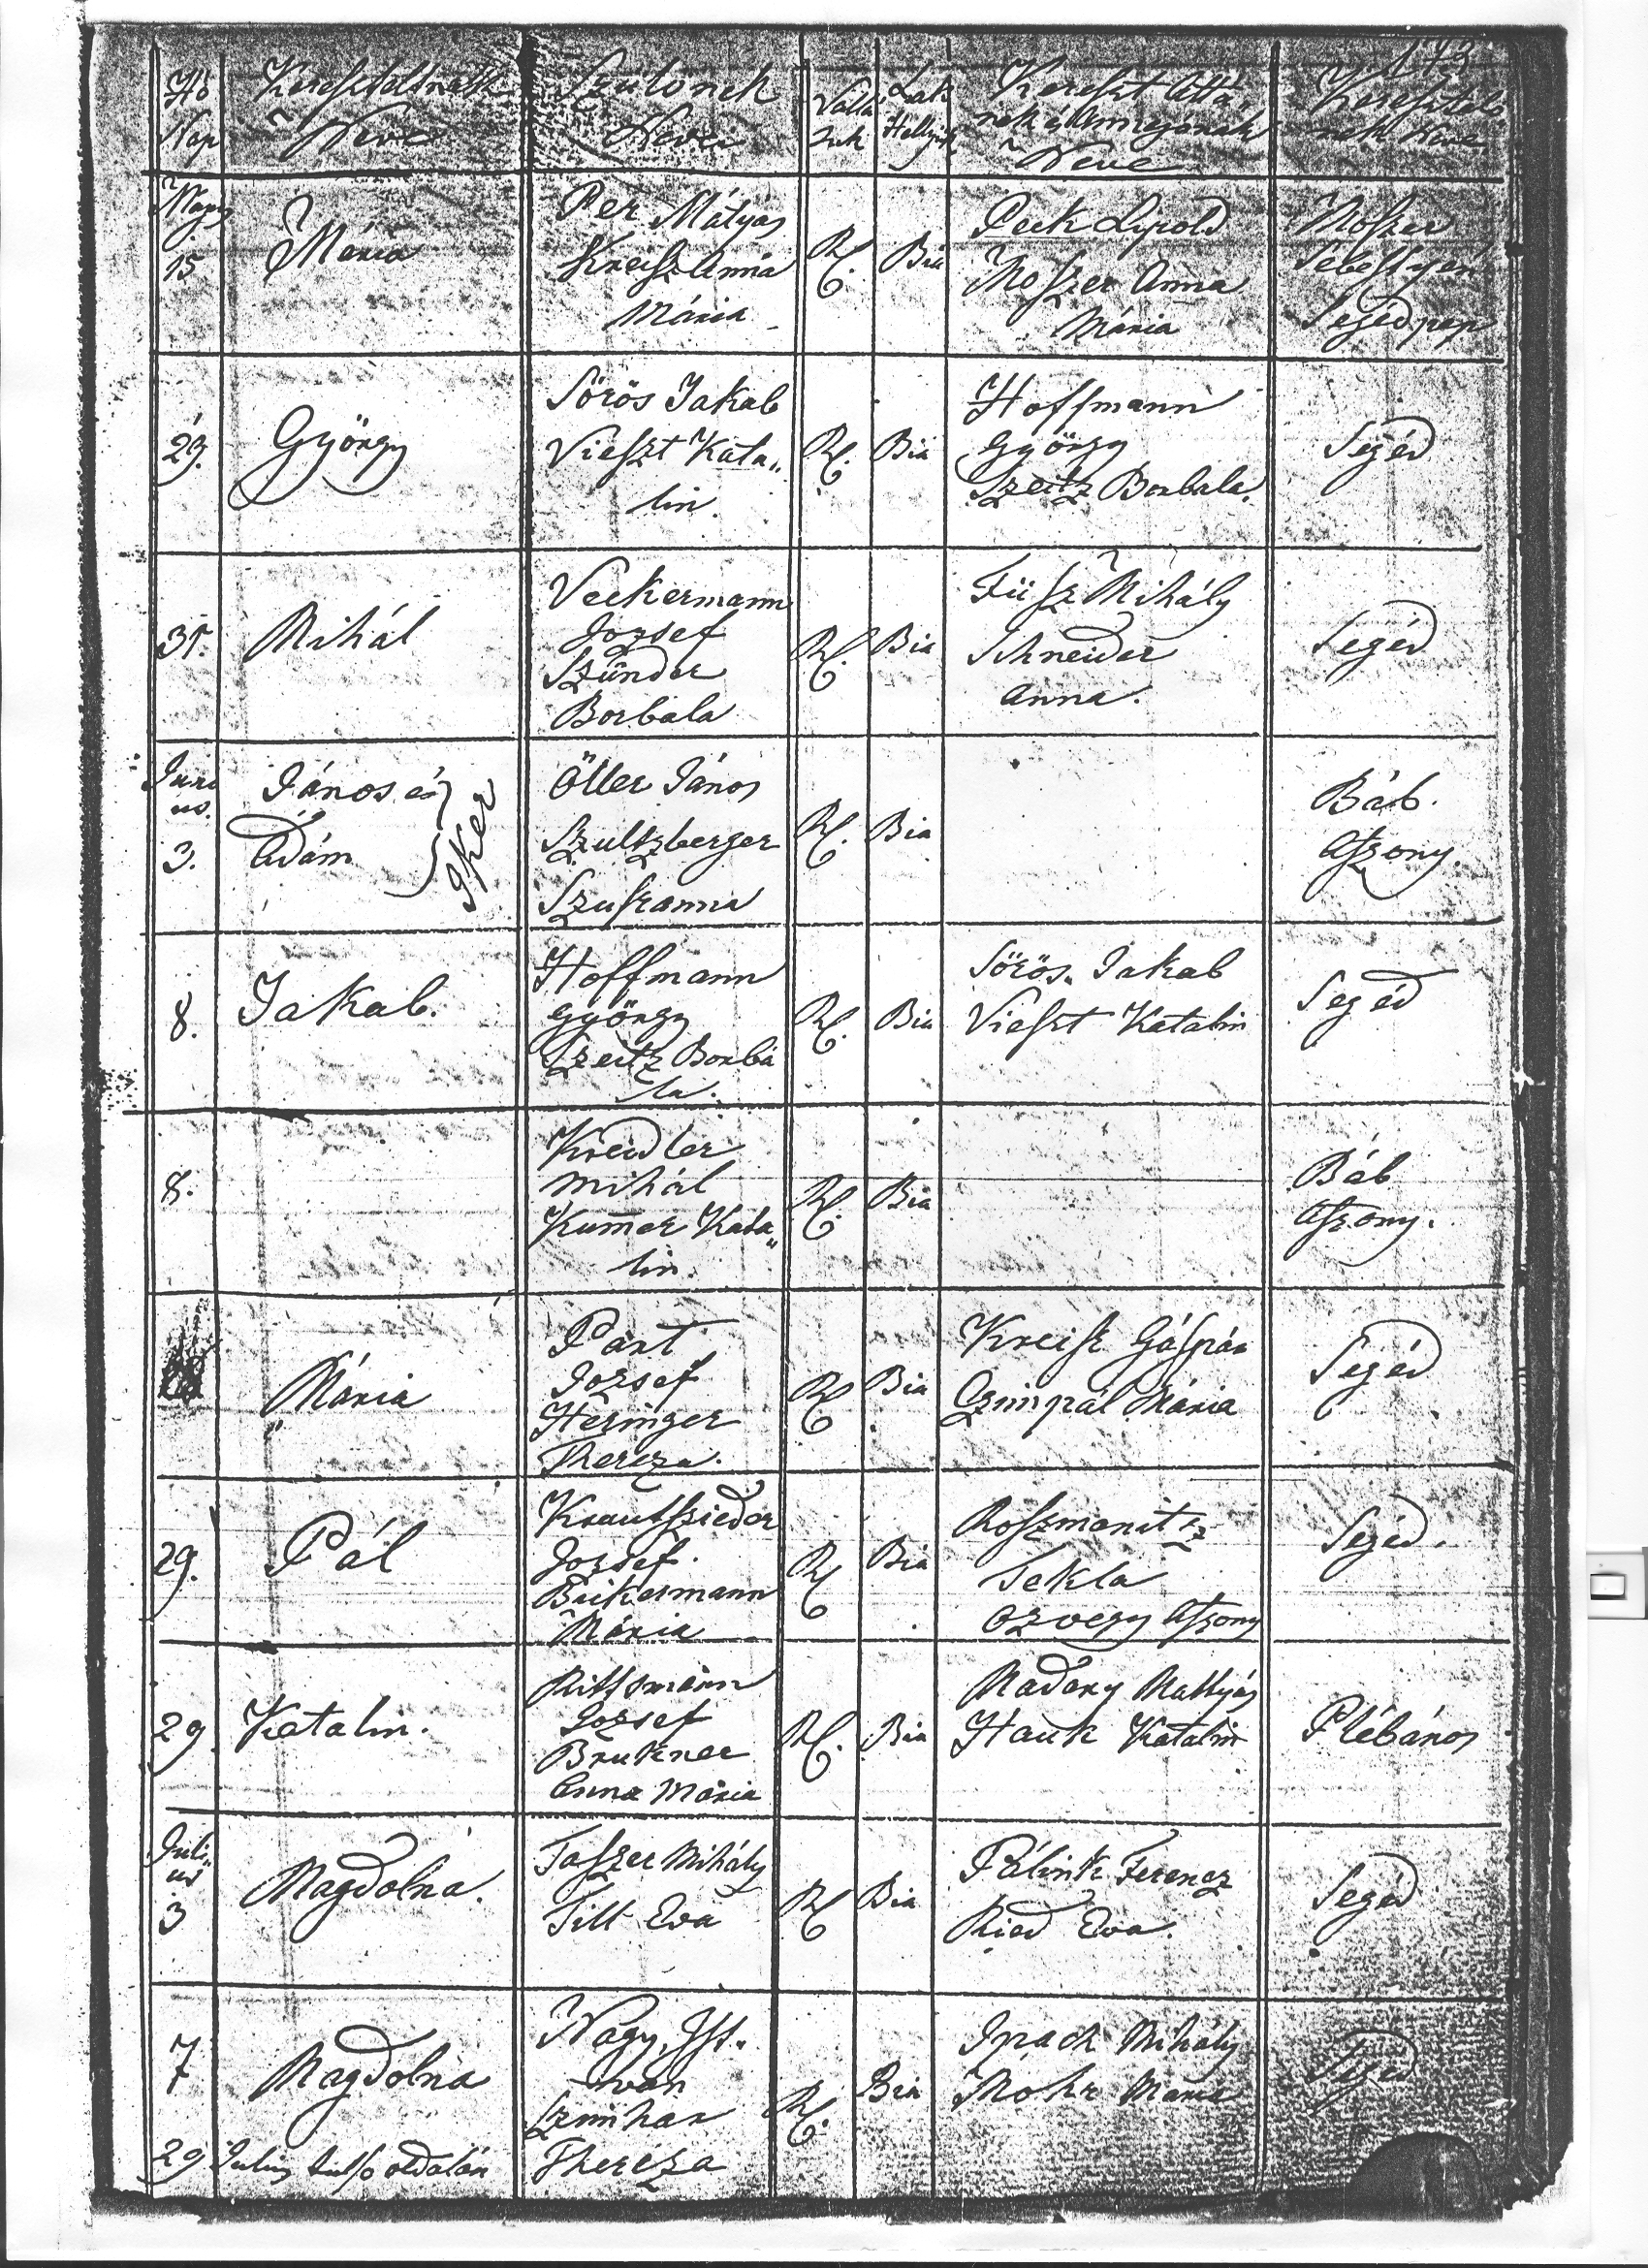 173
Hó Nap
Kereszteltnek Neve
Szülőnek Nevei
Vallásuk
Lak Hellyük
Kereszt Attának és Annyának Neve
Keresztelőnek Neve
Majus 15
Mária
Per Mátyás
Kreisz Anna
Mária
RC.
Bia
Peck Lipold
Moszer Anna
Mária
Moszer
Sebestyén
Segédpap
29.
György
Sörös Jakab
Vieszt Kata„
lin.
RC.
Bia
Hoffmann
György
Szeitz Borbala.
Segéd
31.
Mihál
Veckermann
Jozsef
Szünder
Borbala
RC.
Bia
Füsz Mihály
Schneider
Anna.
Segéd
Juni
us.
3.
János és
Ádám
Iker
Öller János
Szultzberger
Szuszanna
RC.
Bia
Báb.
Aszony.
8.
Jakab.
Hoffmann
György
Szeitz Borbá
la.
RC.
Bia
Sörös. Jakab
Vieszt Katalin
Segéd
8.
Kreidler
Mihál
Kumer Kata„
lin.
RC.
Bia
Báb
Aszony.
Mária
Part
Jozsef
Heringer
Thereza.
RC
Bia
Kreisz Gáspár
Czimpál Mária
Segéd
29.
Pál
Krautszieder
Jozsef.
Bickermann
Mária
RC
Bia
Roszmanitz
Tekla
özvegy Aszony
Segéd.
29
Katalin.
Rittsmann
Jozsef
Brukner
Anna Mária
RC.
Bia
Madary Mattyás
Hauk Katalin
Plébános
Juli
us
3
Magdolna.
Taszer Mihály
Tilt Eva
RC
Bia
Pálink Ferencz
Ried Eva.
Segéd
7
Magdolna
Nagy Ist.
ván
Szmihar
Thereza
RC.
Bia
Ipach Mihály
Mohr Mária
Segéd
29 Julius tulsó oldalán